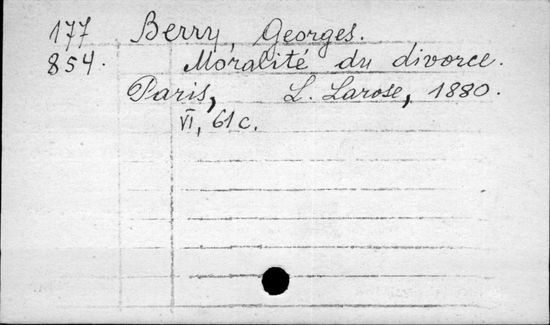 177 Berry, Georges.
854. Moralité du divorce.
Paris, L. Larose, 1880.
VI, 61 c.